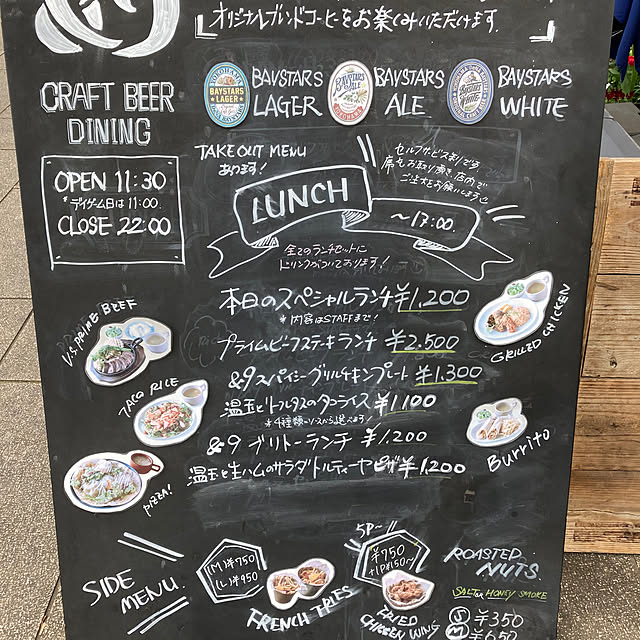 オリジナルブレンドコーヒーをお楽しみいただけます.
CRAFT BEER
DINING
BAYSTARS
LAGER
BAYSTARS
ALE
BAYSTARS
WHITE
OPEN 11:30
*デイゲーム日は11:00.
CLOSE 22:00
TAKE OUT MENU
あります!
セルフサービスまりです.
席をお取り頂き、店内で
ご注文をお願いします
LUNCH
~17:00.
全てのランチセットに
ドリンクがついております!
本日のスペシャルランチ ¥1,200
*内容はSTAFFまで!
プライムビーフステーキランチ ¥2.500
&9スパイシーグリルチキンプレート ¥1.300
温玉とトルティアスのタコライス ¥1100
*4種類のソースから選べます!
&9 ブリトーランチ ¥1,200
温玉と生ハムのサラダトルティーヤピザ ¥1,200
U.S.PRIME BEEF
TACO RICE
PIZZA!
GRILLED CHICKEN
Burrito
SIDE
MENU.
(M)¥750
(L)¥950
FRENCH FRIES
5P~
¥750
+1P¥150~
FRIED
CHICKEN WING
ROASTED
NUTS.
SALT or HONEY SMOKE
Ⓢ ¥350
Ⓜ ¥650